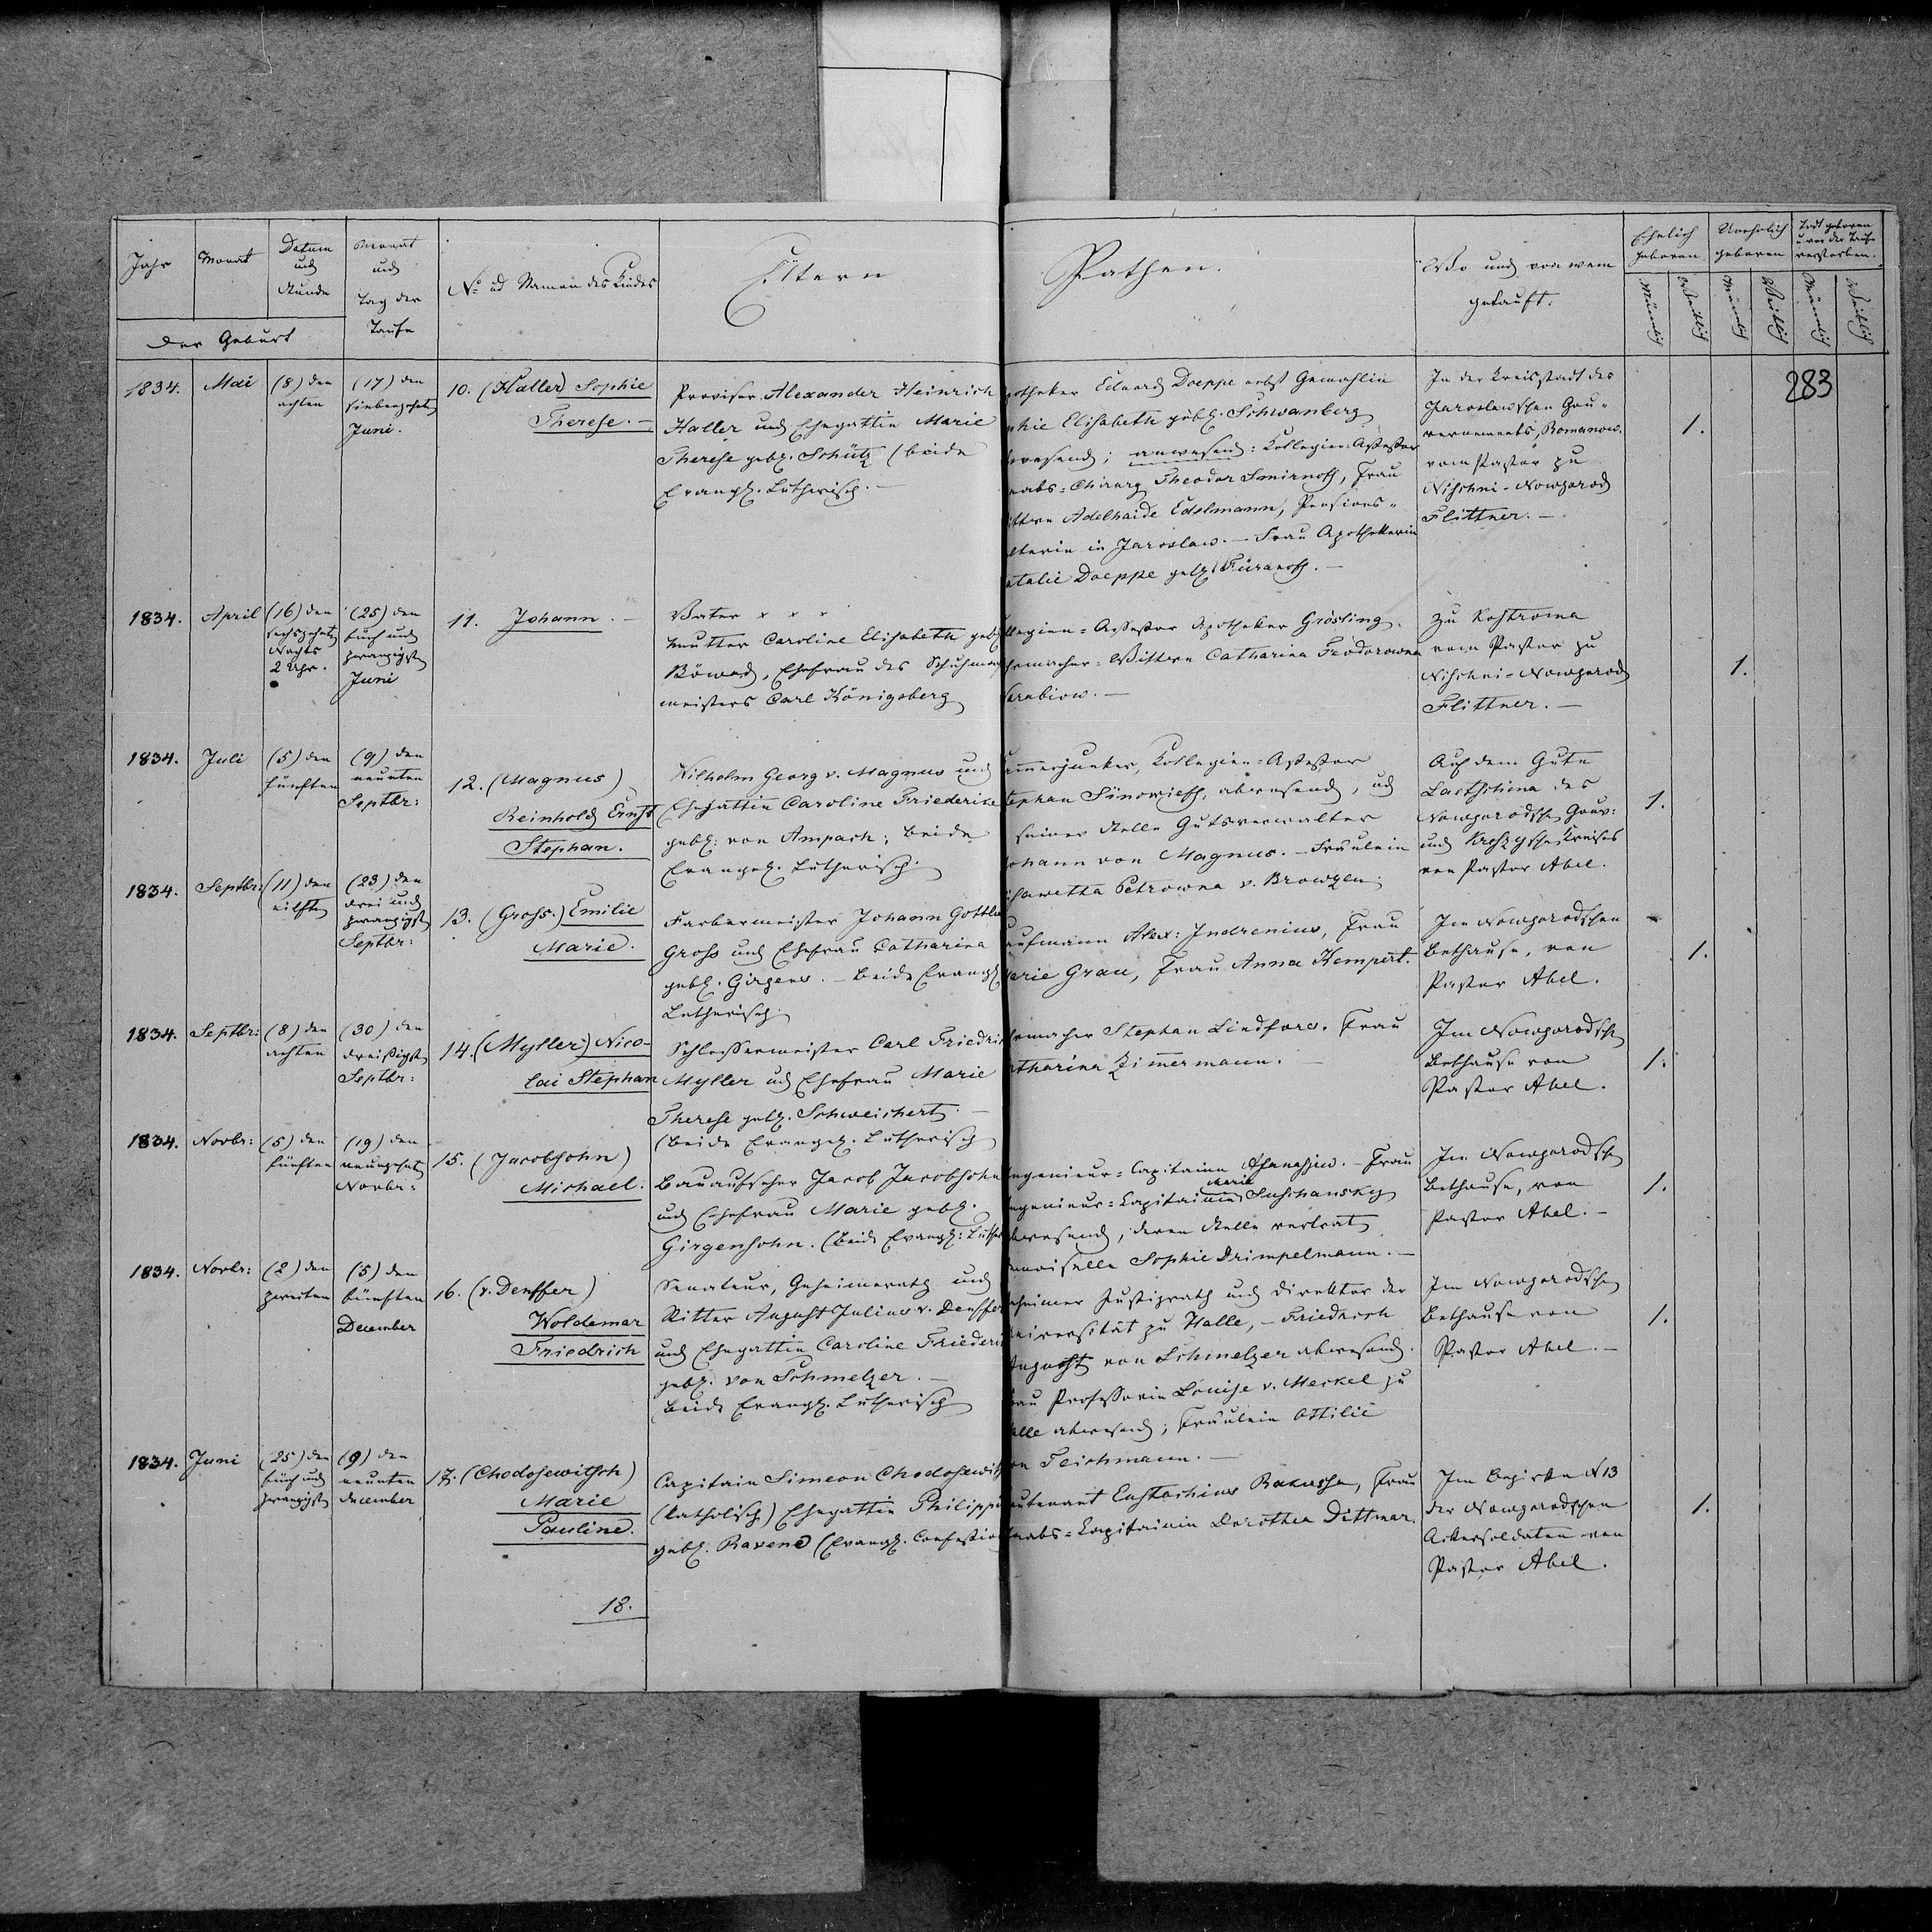 Jahr
Monat
Datum und Stunde
Der Geburt
Monat und Tag der Taufe
No ud Namen des Kindes
Eltern
Pathen.
Wo und von wem getauft.
Ehelich geboren
Unehelich geboren
Todt geboren u. vor der Taufe verstorben.
Männlich
Weiblich
Männlich
Weiblich
Männlich
Weiblich
283
1834. Mai (8) den achten
(17) den siebenzehnten Juni.
10. (Haller) Sophie
Therese.
Provisor Alexander Heinrich
Haller und Ehegattin Marie
Therese geb. Schütz (beide
Evangl. Lutherisch.
otheker Eduard Doeppe nebst Gemahlin
hie Elisabeth gebh. Schwanberg
wesend; anwesend: Kollegien-Assessor
aabs-Chirurg Theodor Smirnoff, Frau
ittwe Adelhaide Edelmann, Pensions-
lterin in Jaroslaw. – Frau Apothekerin
atalie Doeppe geb.
In der Kreisstadt des
Jaroslawschen Gou-
vernements, Romanow.
vom Pastor zu
Nischni-Nowgorod
Flittner.
1.
1834. April (16) den sechszehnten Nachts 2 Uhr.
(25) den fünf und zwanzigsten Juni
11. Johann.
Vater x x x
Mutter Caroline Elisabeth geb
Ehefrau des Schuhmach
meisters Carl Königsberg
llegien-Assessor Apotheker Grösling.
hrmacher-Wittwe Catharina Feodorowna
Zu Kostroma
vom Pastor zu
Nischni-Nowgorod
Flittner.
1.
1834. Juli (5) den fünften
(9) den neunten Septbr:
12. (Magnus)
Reinhold Ernst
Stephan.
Wilhelm Georg v. Magnus und
Ehegattin Caroline Friederike
gebh: von Ampach; beide
Evangel. Lutherisch.
ammerjunker, Kollegien-Assessor
tephan Sinowieff, abwesend, ud
seiner Stelle Gutsverwalter
ohann von Magnus. – Fräulein
sawetta Petrowna v. Browzen.
Auf dem Gute
des
Nowgorodsch Gouv:
und Kreises
von Pastor Abel.
1.
1834. Septbr: (11) den eilften
(23) den drei und zwanzigsten Septbr:
13. (Gross.) Emilie
Marie.
Farbermeister Johann Gottli
Gross und Ehefrau Catharina
gebh. Girgens. – Beide Evangl
Lutherisch.
aufmann Alex: Indrenius, Frau
arie Grau, Frau Anna Kempert.
Im Nowgorodschen
Bethause, von
Pastor Abel.
1.
1834. Septbr: (8) den achten
(30) den dreißigsten Septbr:
14. (Myller) Nico-
lai Stephan
Schlossermeister Carl Friedri
Myller ud Ehefrau Marie
Therese gebh. Schweichert.
(Beide Evangel. Lutherisch
rmacher Stephan Lindfors. Frau
atharina Zimmermann.
Im Nowgorodsch
Bethause von
Pastor Abel.
1.
1834. Novbr: (5) den fünften
(19) den neunzehnten Novbr:
15. (Jacobsohn)
Michael.
Bauaufseher Jacob Jacobsohn
und Ehefrau Marie gebh.
Girgensohn. (Beide Evangl: Luther
ngenieur-Capitaine Afanassiew. – Frau
ngenieur-Capitainin Marie Suschansky
bwesend, deren Stelle vertrat
emoiselle Sophie Drimpelmann.
Im Nowgorodsch
Bethause, von
Pastor Abel.
1.
1834. Novbr: (2) den zweiten
(5) den fünften December
16. (v. Denffer)
Woldemar
Friedrich
Senateur, Geheimerath und
Ritter August Julius v. Denffer
und Ehegattin Caroline Friederi
gebh. von Schmelzer.
Beide Evangl. Lutherisch
eheimer Justizrath und Direktor der
niversität zu Halle, – Friedrich
August von Schmelzer abwesend.
rau Professorin Louise v. Merkel zu
alle abwesend; Fräulein Ottilie
on Teichmann.
Im Nowgorodsch
Bethause von
Pastor Abel.
1.
1834. Juni (25) den fünf und zwanzigsten
(9) den neunten December
17. (Chodosewitsch)
Marie
Pauline.
Capitain Simeon Chodosewits
(katholisch) Ehegattin Philippi
gebh. Ravene (Evangl. Confession
eutenant Eustachius Rakusse, Frau
aabs-Capitainin Dorothea Dittmar.
Im Bezirke N 13
der Nowgorodschen
Ackersoldaten von
Pastor Abel.
1.
18.